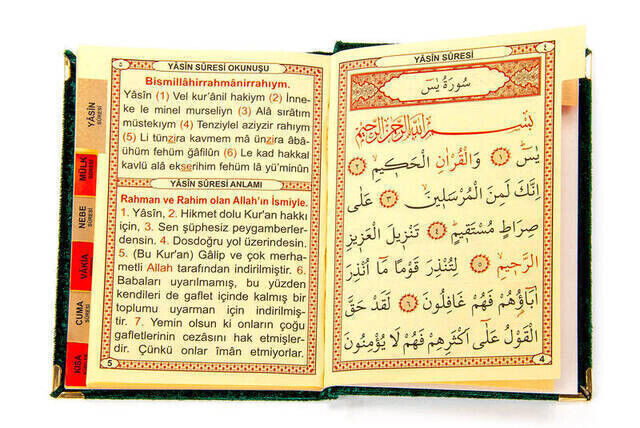 ٤
YÂSİN SÛRESİ
سُورَةُ يٰسٓ
بِسْــمِ اللّٰهِ الرَّحْمٰنِ الرَّحِيمِ
يٰسٓ ﴿١﴾ وَالْقُرْاٰنِ الْحَكِيمِۙ ﴿٢﴾
اِنَّكَ لَمِنَ الْمُرْسَلِينَۙ ﴿٣﴾ عَلٰى
صِرَاطٍ مُسْتَقِيمٍۜ ﴿٤﴾ تَنْزِيلَ الْعَزِيزِ
الرَّحِيمِۙ ﴿٥﴾ لِتُنْذِرَ قَوْمًا مَٓا اُنْذِرَ
اٰبَٓاؤُ۬هُمْ فَهُمْ غَافِلُونَ ﴿٦﴾ لَقَدْ حَقَّ
الْقَوْلُ عَلٰٓى اَكْثَرِهِمْ فَهُمْ لَا يُؤْمِنُونَ
4
٥
YÂSİN SÛRESİ OKUNUŞU
Bismillâhirrahmânirrahıym.
Yâsîn (1) Vel kur'ânil hakiym (2) İnne-
ke le minel murseliyn (3) Alâ sırâtım
müstekıym (4) Tenziylel aziyzir rahıym
(5) Li tünzira kavmem mâ ünzira âbâ-
ühüm fehüm ğâfilûn (6) Le kad hakkal
kavlü alâ ekserihim fehüm lâ yü'minûn
YÂSİN SÛRESİ ANLAMI
Rahman ve Rahim olan Allah'ın İsmiyle.
1. Yâsîn, 2. Hikmet dolu Kur'an hakkı
için, 3. Sen şüphesiz peygamberler-
densin. 4. Dosdoğru yol üzerindesin.
5. (Bu Kur'an) Gâlip ve çok merha-
metli Allah tarafından indirilmiştir. 6.
Babaları uyarılmamış, bu yüzden
kendileri de gaflet içinde kalmış bir
toplumu uyarman için indirilmiş-
tir. 7. Yemin olsun ki onların çoğu
gafletlerinin cezasını hak etmişler-
dir. Çünkü onlar îman etmiyorlar.
5
YÂSİN
SÛRESİ
MÜLK
SÛRESİ
NEBE
SÛRESİ
VÂKIA
CUMA
SÛRESİ
KISA